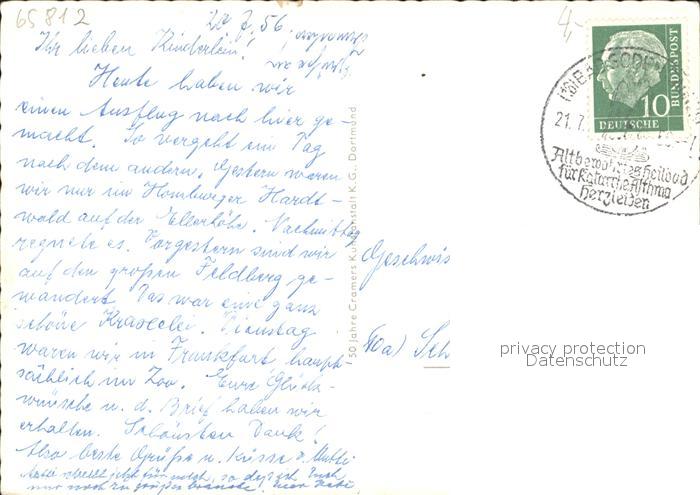 65812
20.7.56.
4,-
Ihr lieben Kinderlein!
Heute haben wir
einen Ausflug nach hier ge-
macht. So vergeht ein Tag
nach dem andern. Gestern waren
wir nur im Homburger Hardt-
wald auf der Ellerhöhe. Nachmittag
regnete es. Vorgestern sind wir
auf den großen Feldberg ge-
wandert. Das war eine ganz
schöne Kraxelei. Dienstag
waren wir in Frankfurt haupt-
sächlich im Zoo. Eure Glück-
wünsche u. d. Brief haben wir
erhalten. Schönsten Dank!
Also beste Grüße u. Küsse v. Mutti
jetzt
nur noch zu grüßen brauche.
150 Jahre Cramers Kunstanstalt K.G., Dortmund
Geschwis
10a) Sch
10
DEUTSCHE
BUNDESPOST
BAD SODEN
21.7.
Altbewährtes Heilbad
für Katarrhe Asthma
Herzleiden
privacy protection
Datenschutz